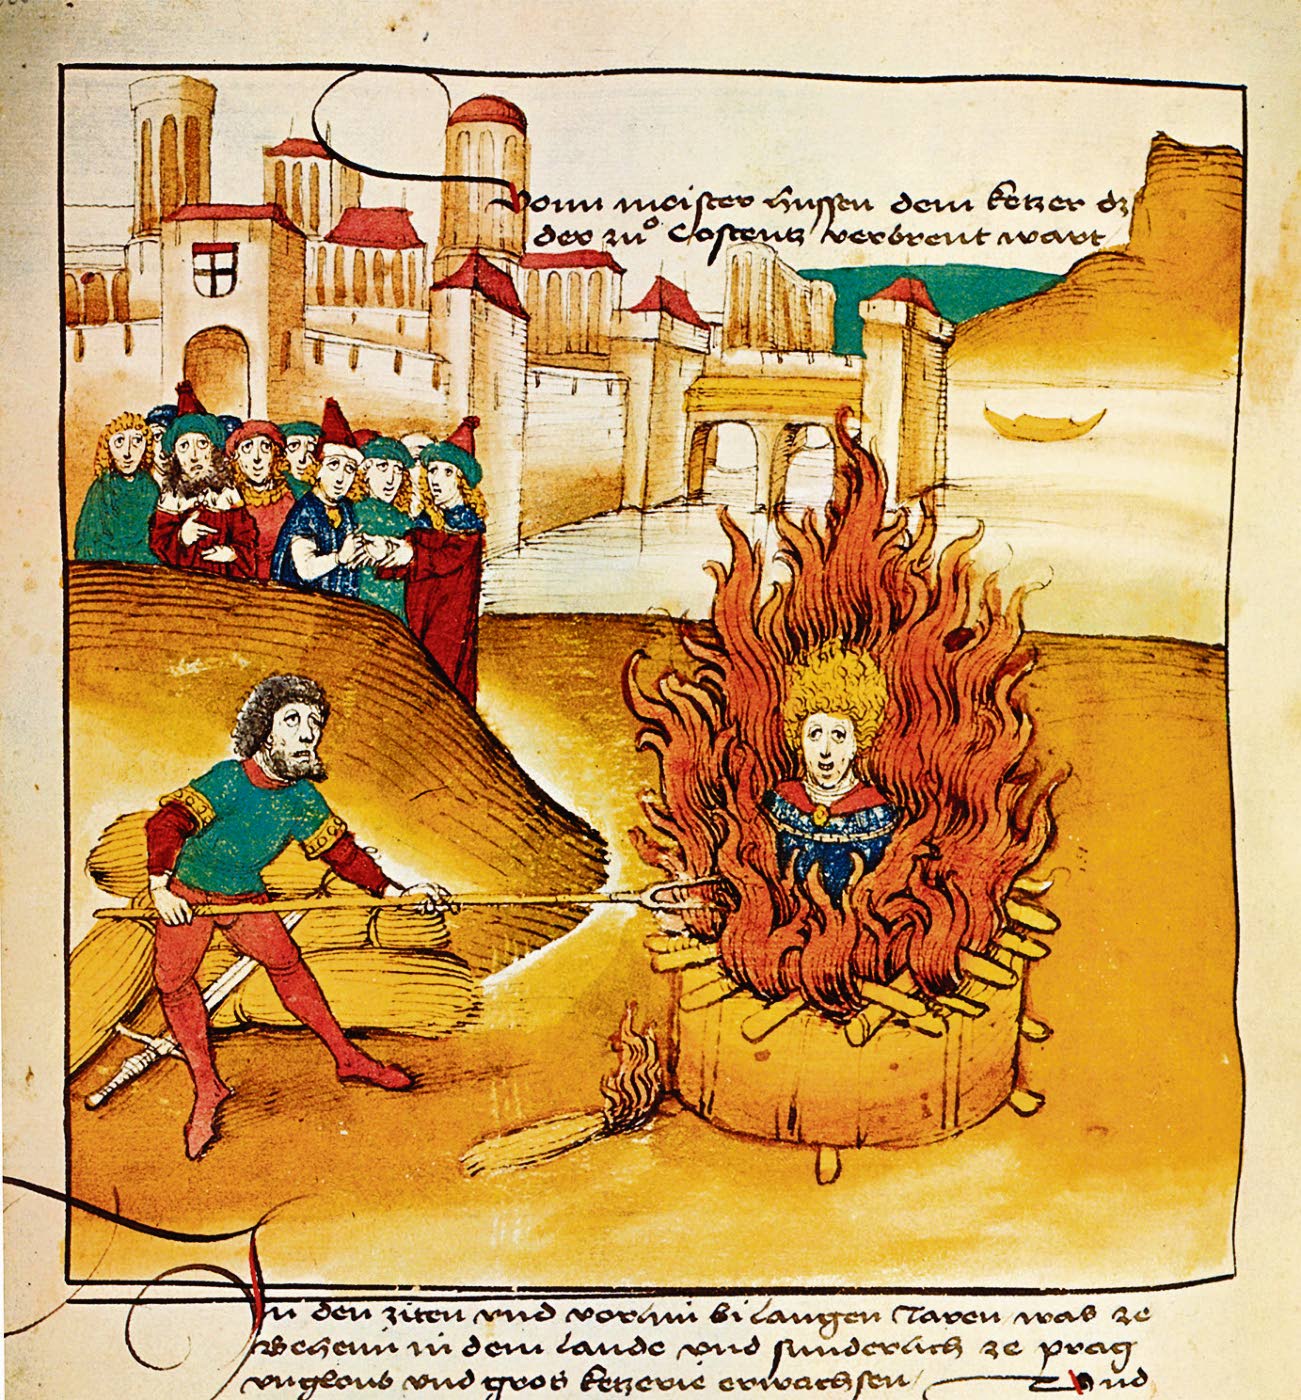 Vonn meister hussen dem ketzer dz
der zuͦ Costentz verbrent wart
In den ziten vnd vorhin bi langen Jaren was ze
Behem in dem lande vnd sunderlich ze prag
vngloub vnd gros ketzerie erwachsen / Vnd